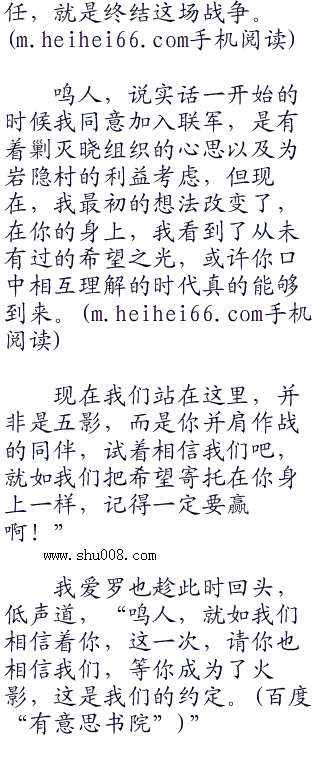 任，就是终结这场战争。
(m.heihei66.com手机阅读)
鸣人，说实话一开始的
时候我同意加入联军，是有
着剿灭晓组织的心思以及为
岩隐村的利益考虑，但现
在，我最初的想法改变了，
在你的身上，我看到了从未
有过的希望之光，或许你口
中相互理解的时代真的能够
到来。(m.heihei66.com手机
阅读)
现在我们站在这里，并
非是五影，而是你并肩作战
的同伴，试着相信我们吧，
就如我们把希望寄托在你身
上一样，记得一定要赢
啊！”
www.shu008.com
我爱罗也趁此时回头，
低声道，“鸣人，就如我们
相信着你，这一次，请你也
相信我们，等你成为了火
影，这是我们的约定。(百度
“有意思书院”)”